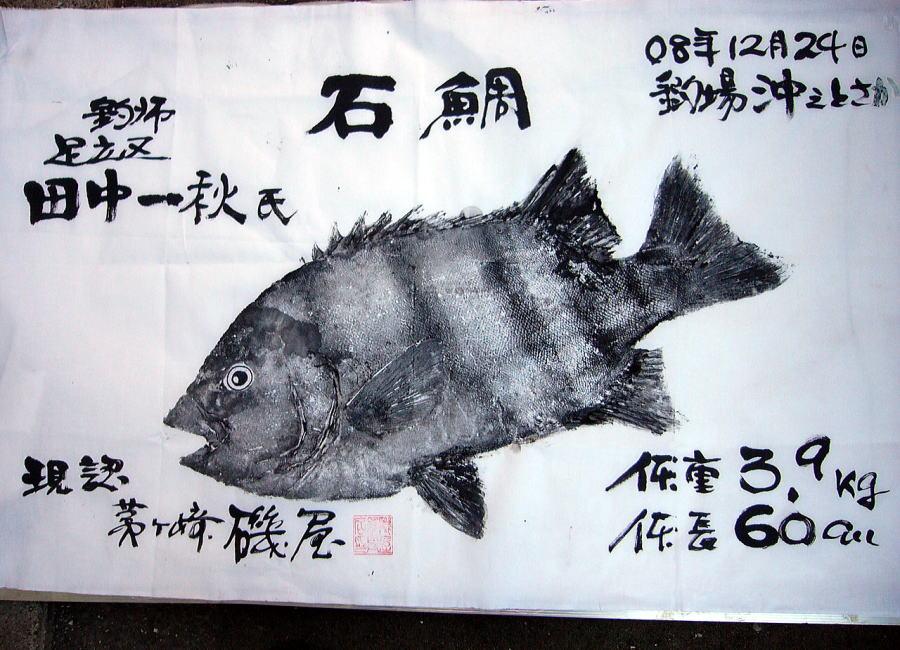 08年12月24日
釣場 沖ノとさ
石鯛
釣師
足立区
田中一秋氏
現認
茅ヶ崎 磯屋
体重 3.9kg
体長 60cm